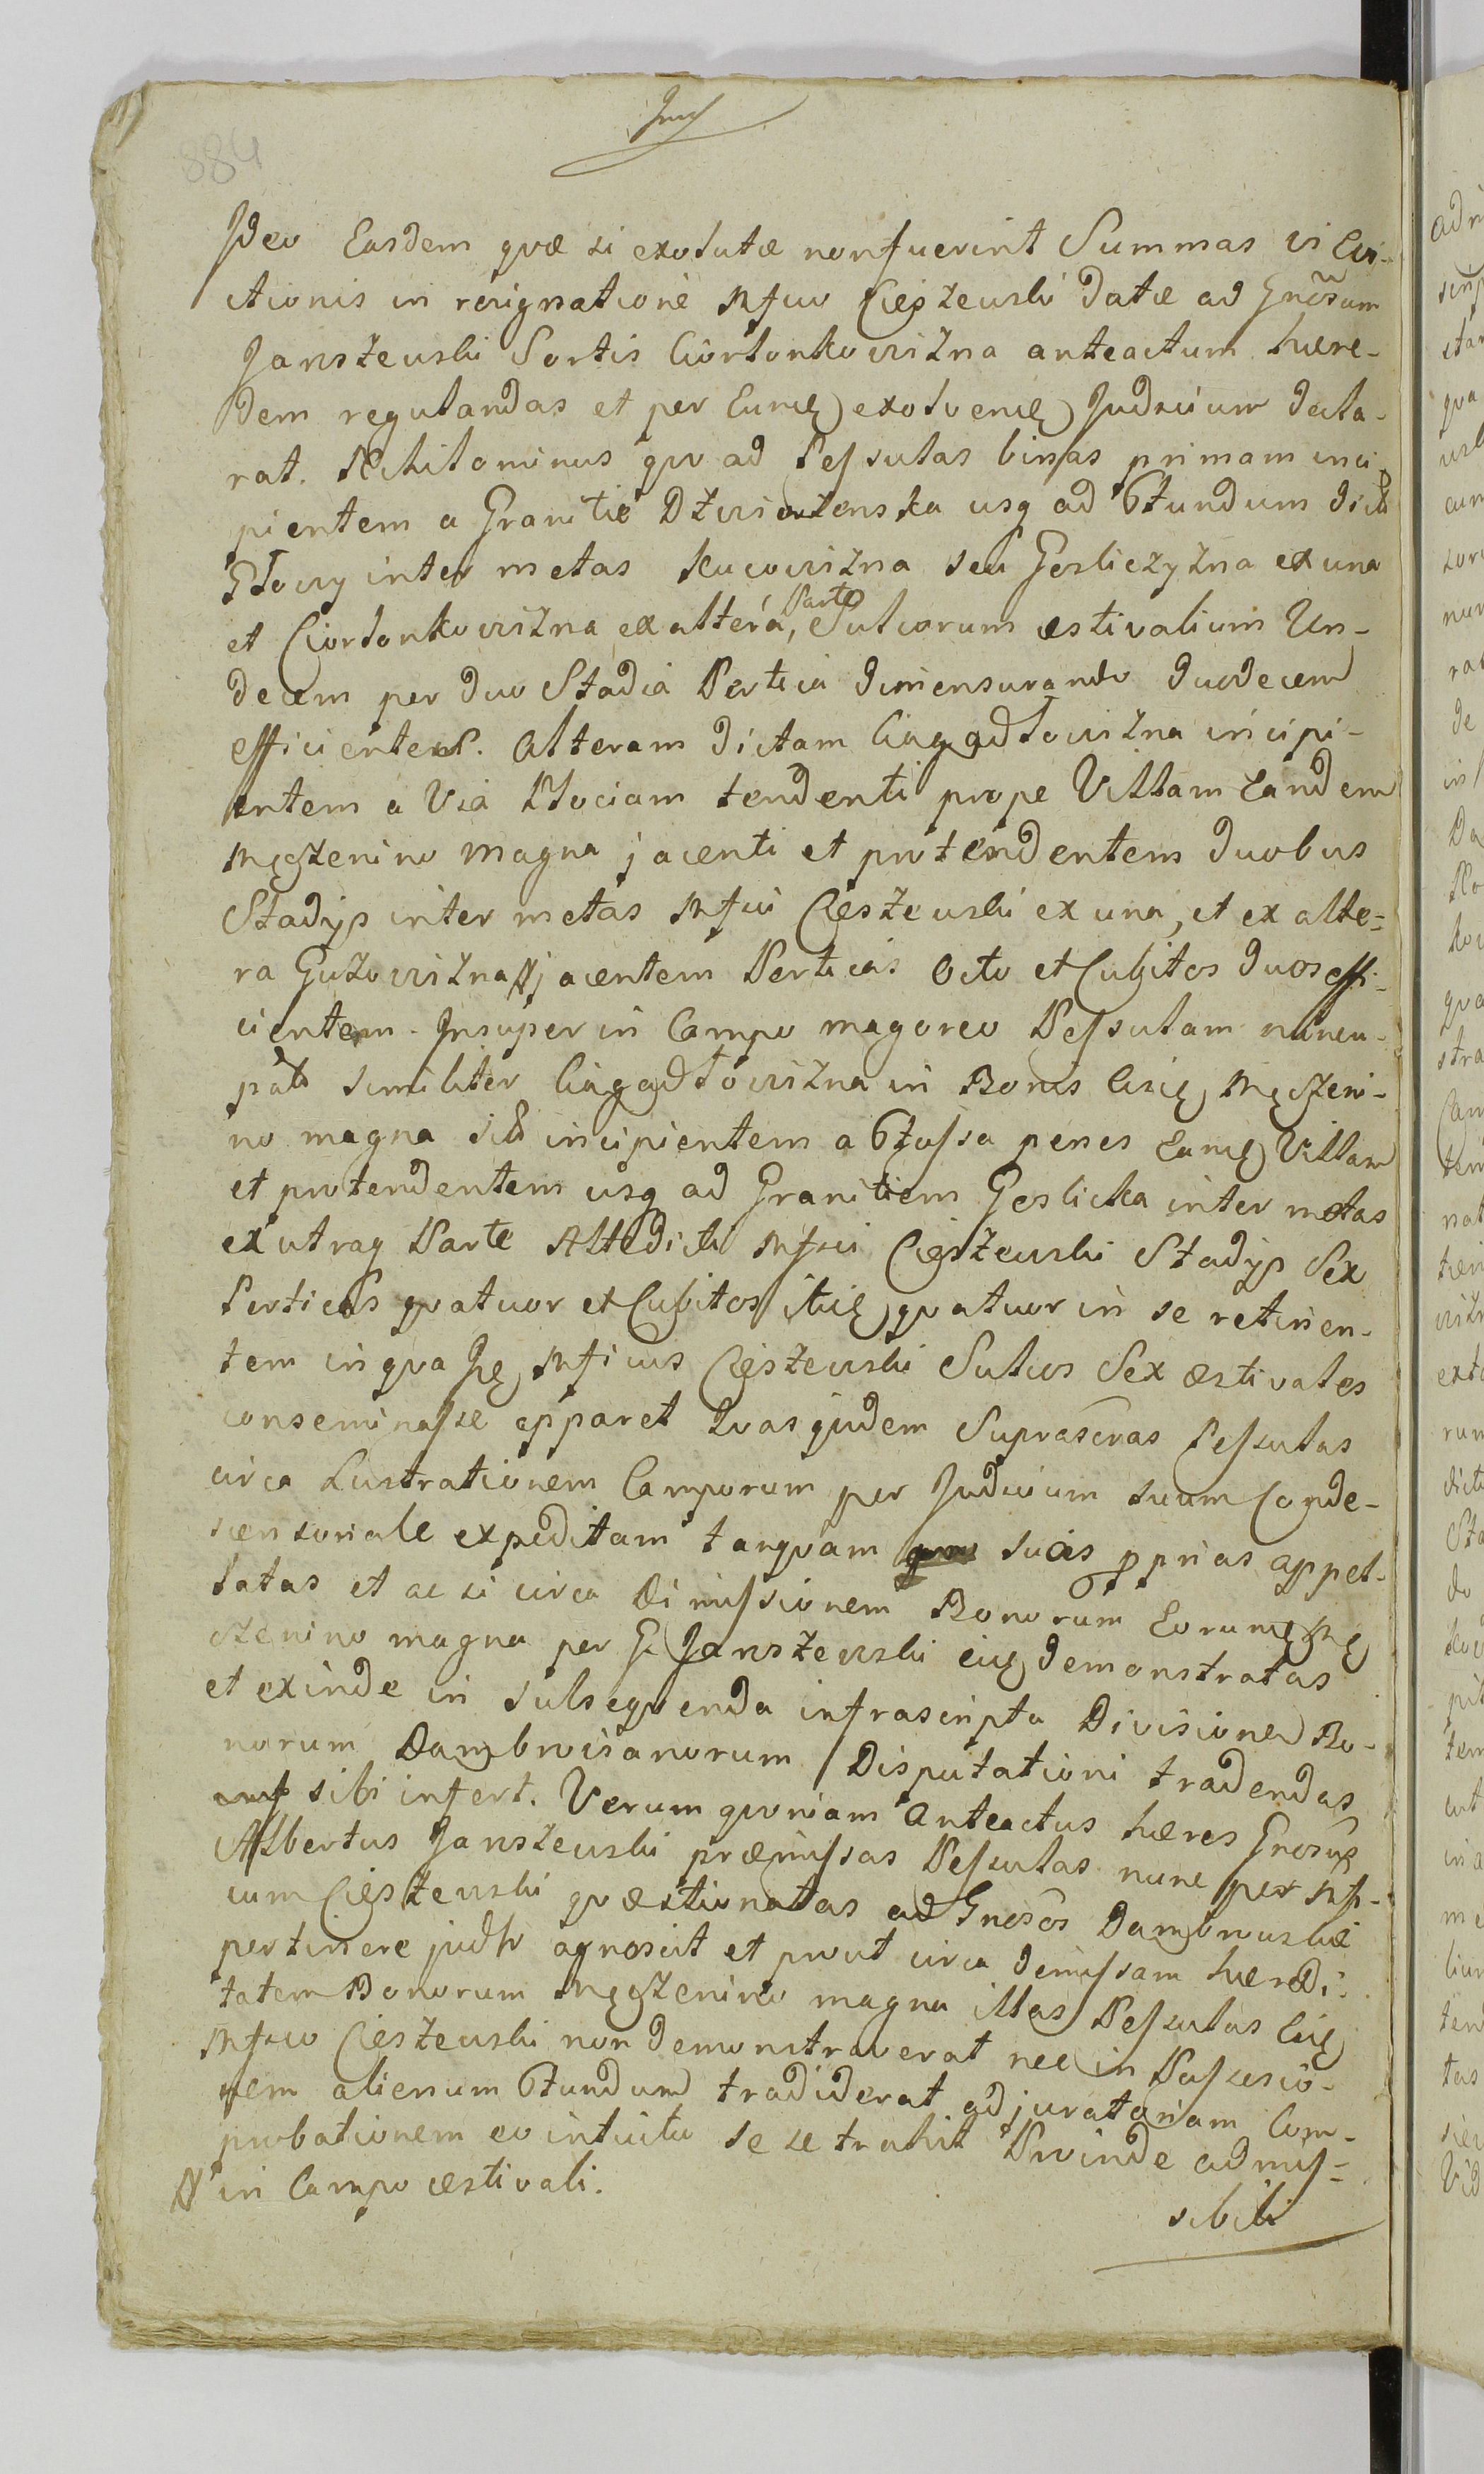 884
Ideo Easdem quæ si exolutæ non fuerint Summas vi Evi-
ctionis in resignatione Mfico Cieszewski datæ ad Gnosum
Janszewski Sortis Ciortonkowizna anteactum hære-
dem regulandas et per Eundę exolvendę Judicium decla-
rat. Nihilominus quo ad Pessulas binas primam inci-
pientem a Granitie Dzwierzenska usq ad Fundum dict
Głowy inter metas Kucowizna seu Gesliczyzna ex una
et Ciortonkowizna ex altera, Parte Sulcorum æstivalium Un-
decem per duo Stadia Pertica dimensurando duodecem
efficientem. Alteram dictam Ciągadłowizna incipi-
entem a Via Płociam tendenti prope Villam Eandem
Męczenino magna jacenti et protendentem duobus
Stadijs inter metas Mfici Cieszewski ex una, et ex alte-
ra Guzowizna # jacentem Perticas Octo et Cubitos duos effi-
cientem. Insuper in Campo magoreo Pessulam nuncu-
pat similiter Ciągadłowizna in Bonis Męczeni-
no magna sit incipientem a Fossa penes Villam
et protendentem usq ad Granitiem Geslicka inter metas
ex utraq Parte Altedicti Mfici Cieszewski Stadijs Sex
Perticas quatuor et Cubitos quatuor in se retinen-
tem in qua Mficus Cieszewski Sulcos Sex æstivales
conseminasse apparet Quas quidem Suprascras Pessulas
circa Lustrationem Camporum per Judicium suum Conde-
scensoriale expeditam tanquam suas pprias appel-
latas et ac si circa Dimissionem Bonorum Me
czenino magna per G. Janszewski demonstratas
et exinde in subsequenda infrascripta Divisione Bo-
norum Dambroisanorum Disputationi tradendas
sibi infert. Verum quoniam Anteactus hæres Gnosus
Albertus Janszewski præmissas Pessulas nunc per Mfi-
cum Cieszewski quæstionatas ad Gnosos Dambrowskie
pertinere judlr agnoscit et prout circa demissam hæredi-
tatem Bonorum Męczenino magna illas Pessulas
Mfico Cieszewski non demonstraverat nec in Possessio-
nem alienum Fundum tradiderat ad juratoriam Com-
probationem eo intuitu sese trahit Proinde admis-
# in Campo æstivali.
sibili